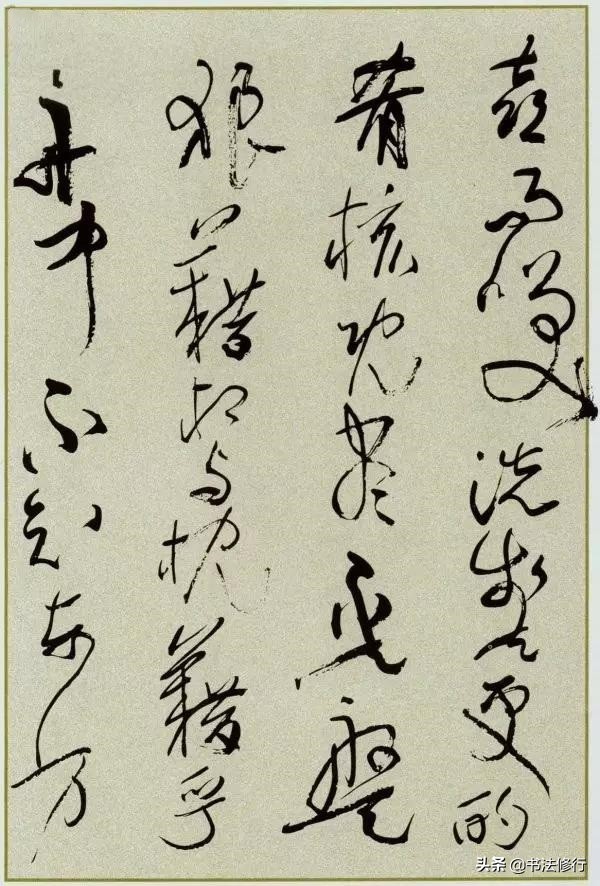 喜而笑洗盞更酌
肴核既盡杯盤
狼藉相與枕藉乎
舟中不知東方
头条 @书法修行